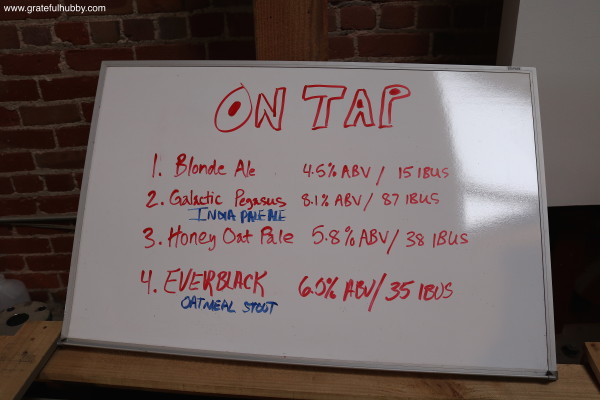 www.gratefulhubby.com
ON TAP
1. Blonde Ale 4.5% ABV / 15 IBUS
2. Galactic Pegasus 8.1% ABV / 87 IBUS
INDIA PALE ALE
3. Honey Oat Pale 5.8% ABV / 38 IBUS
4. EVERBLACK 6.0% ABV / 35 IBUS
OATMEAL STOUT